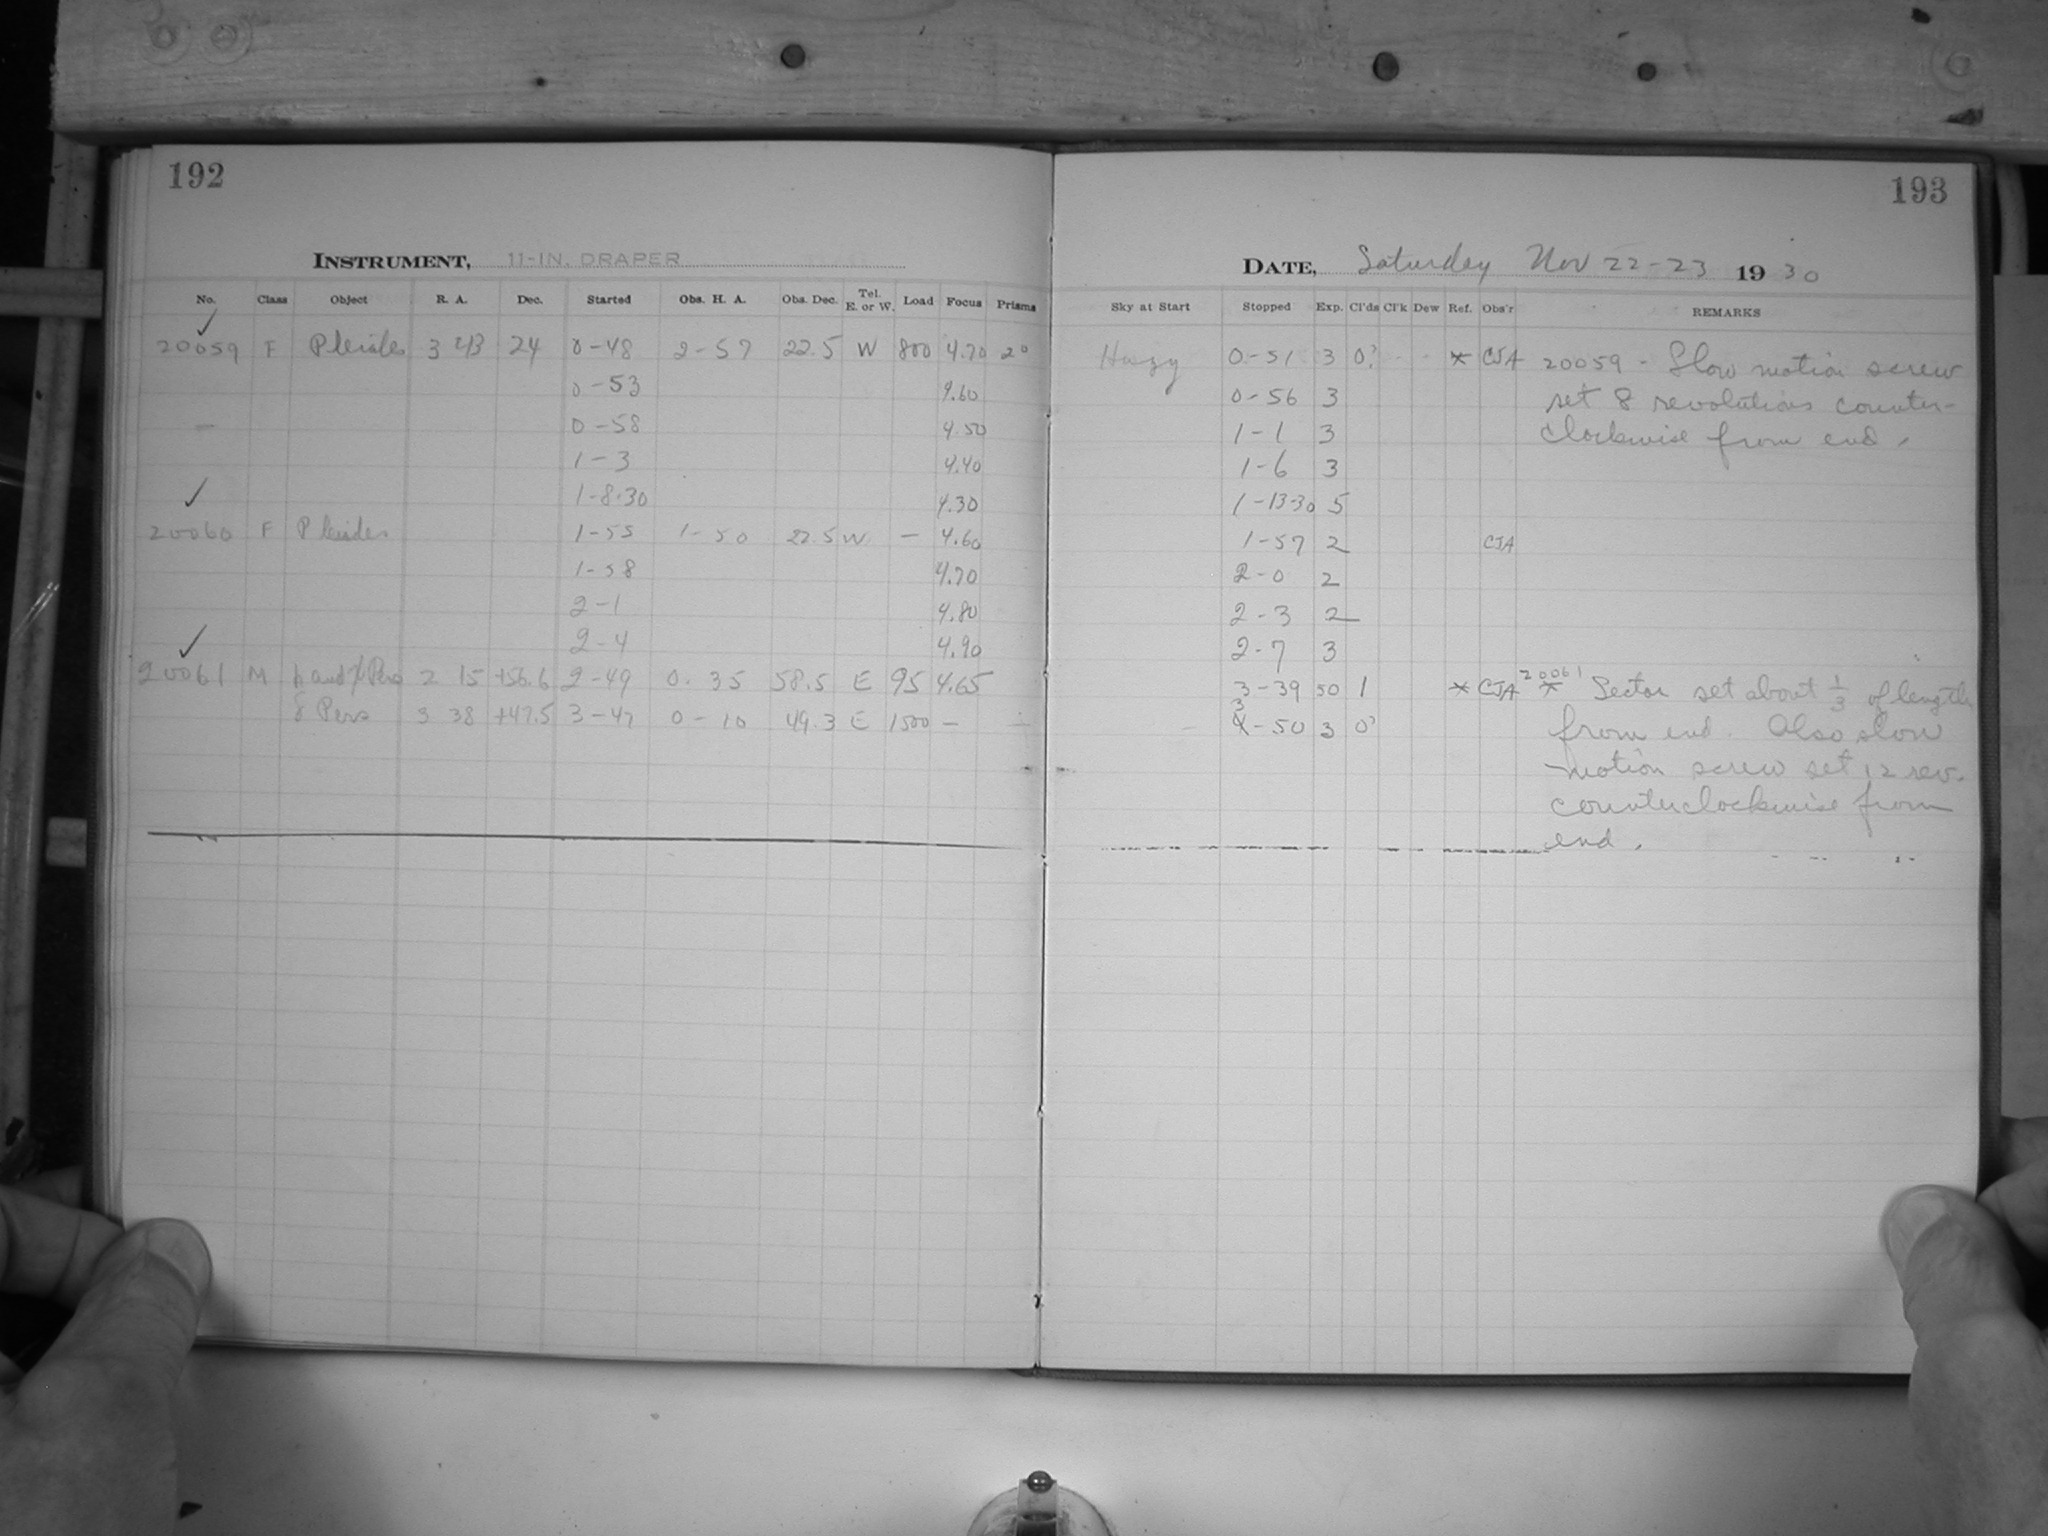 192
INSTRUMENT, 11-IN. DRAPER
No. Class Object R. A. Dec. Started Obs. H. A. Obs. Dec. Tel. E. or W. Load Focus Prisms
✓
20059 F Pleiades 3 43 24 0-48 2-57 22.5 W 800 4.70 2°
0-53 4.60
— 0-58 4.50
1-3 4.40
✓ 1-8.30 4.30
20060 F Pleiades 1-55 1-50 22.5 W — 4.60
1-58 4.70
2-1 4.80
✓ 2-4 4.90
20061 M h and χ Pers 2 15 +56.6 2-49 0.35 58.5 E 95 4.65
δ Pers 3 38 +47.5 3-47 0-10 49.3 E 1500 —
193
DATE, Saturday Nov 22-23 1930
Sky at Start Stopped Exp. Cl'ds Cl'k Dew Ref. Obs'r REMARKS
Hazy 0-51 3 0? - - * CJA 20059 - Slow motion screw
0-56 3 set 8 revolutions counter-
1-1 3 clockwise from end.
1-6 3
1-13-30 5
1-57 2 CJA
2-0 2
2-3 2
2-7 3
3-39 50 1 * CJA 20061 * Sector set about 1/3 of length
3-50 3 0? from end. Also slow
motion screw set 12 rev.
counterclockwise from
end.